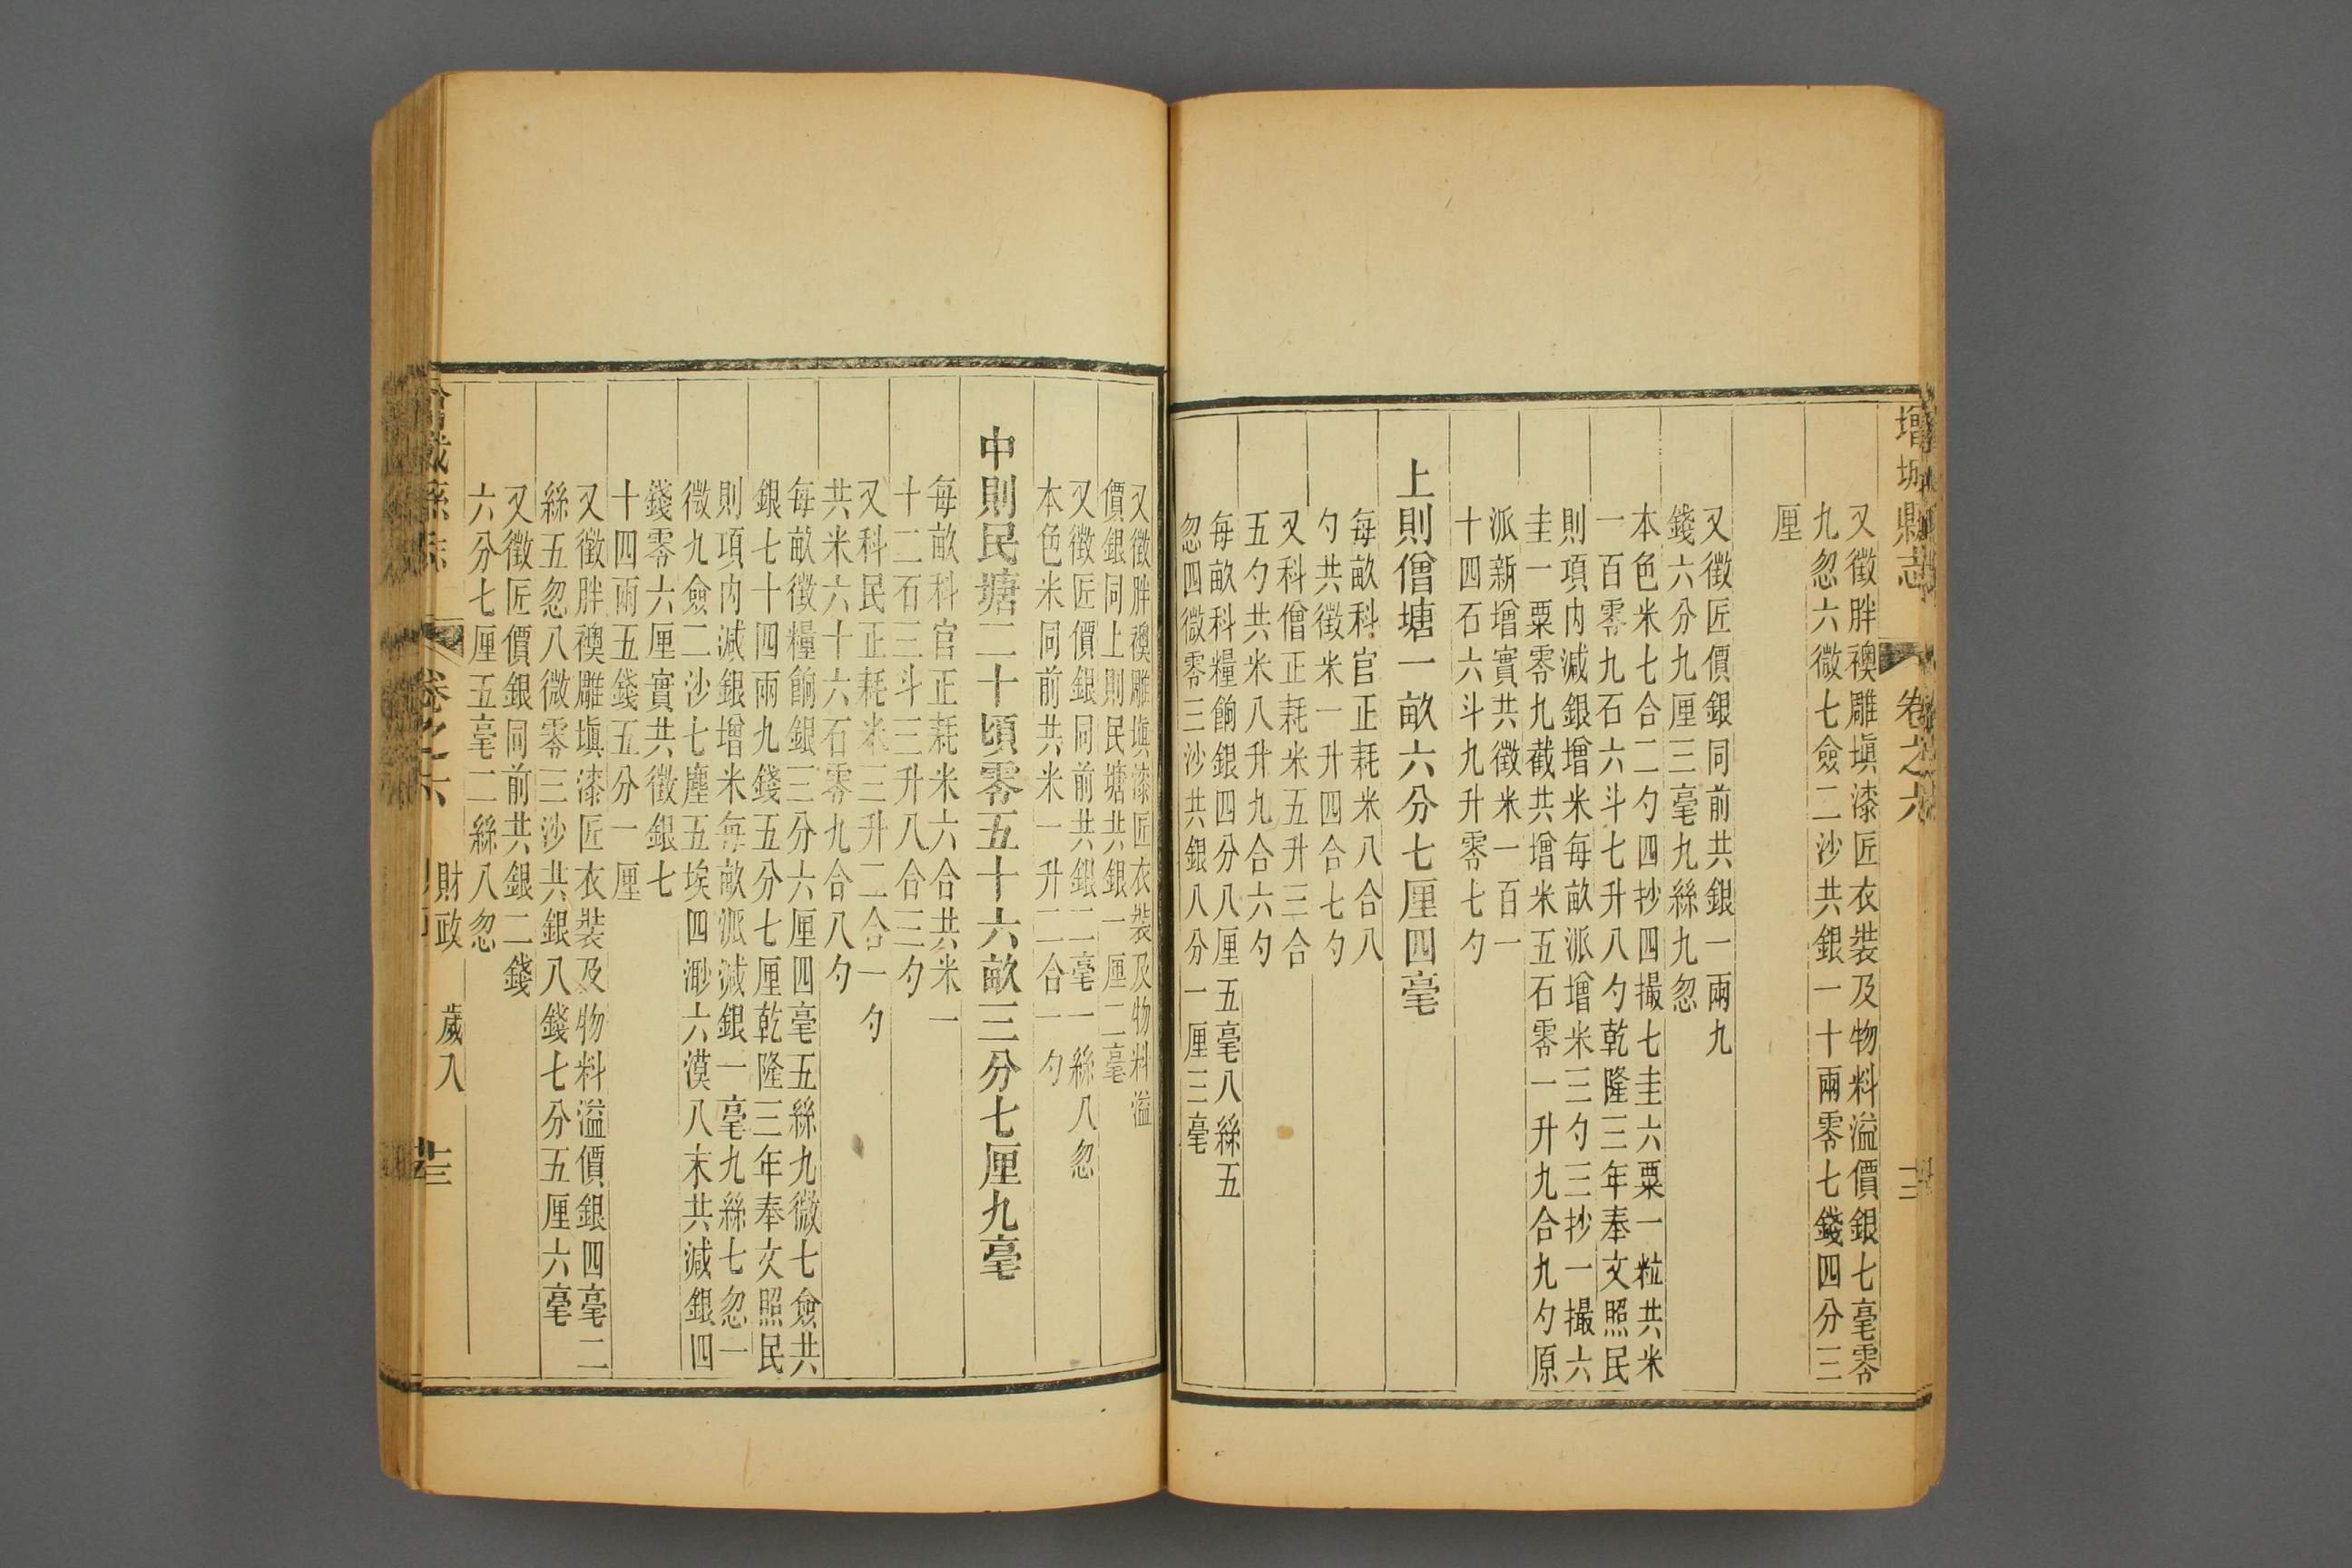 增城縣志
卷之六
又徵胖襖雕塡漆匠衣裝及物料溢價銀七毫零
九忽六微七僉二沙共銀一十兩零七錢四分三
厘
又徵匠價銀同前共銀一兩九
錢六分九厘三毫九絲九忽
本色米七合二勺四抄四撮七圭六粟一粒共米
一百零九石六斗七升八勺乾隆三年奉文照民
則項内減銀增米每畝派增米三勺三抄一撮六
圭一粟零九截共增米五石零一升九合九勺原
派新增實共徵米一百一
十四石六斗九升零七勺
上則僧塘一畝六分七厘四毫
每畝科官正耗米八合八
勺共徵米一升四合七勺
又科僧正耗米五升三合
五勺共米八升九合六勺
每畝科糧餉銀四分八厘五毫八絲五
忽四微零三沙共銀八分一厘三毫
又徵胖襖雕塡漆匠衣裝及物料溢
價銀同上則民塘共銀一厘二毫
又徵匠價銀同前共銀二毫一絲八忽
本色米同前共米一升二合一勺
中則民塘二十頃零五十六畝三分七厘九毫
每畝科官正耗米六合共米一
十二石三斗三升八合三勺
又科民正耗米三升二合一勺
共米六十六石零九合八勺
每畝徵糧餉銀三分六厘四毫五絲九微七僉共
銀七十四兩九錢五分七厘乾隆三年奉文照民
則項内減銀增米每畝派減銀一毫九絲七忽一
微九僉二沙七塵五埃四渺六漠八末共減銀四
錢零六厘實共徵銀七
十四兩五錢五分一厘
又徵胖襖雕塡漆匠衣裝及物料溢價銀四毫二
絲五忽八微零三沙共銀八錢七分五厘六毫
又徵匠價銀同前共銀二錢
六分七厘五毫二絲八忽
卷之六
財政
歲入